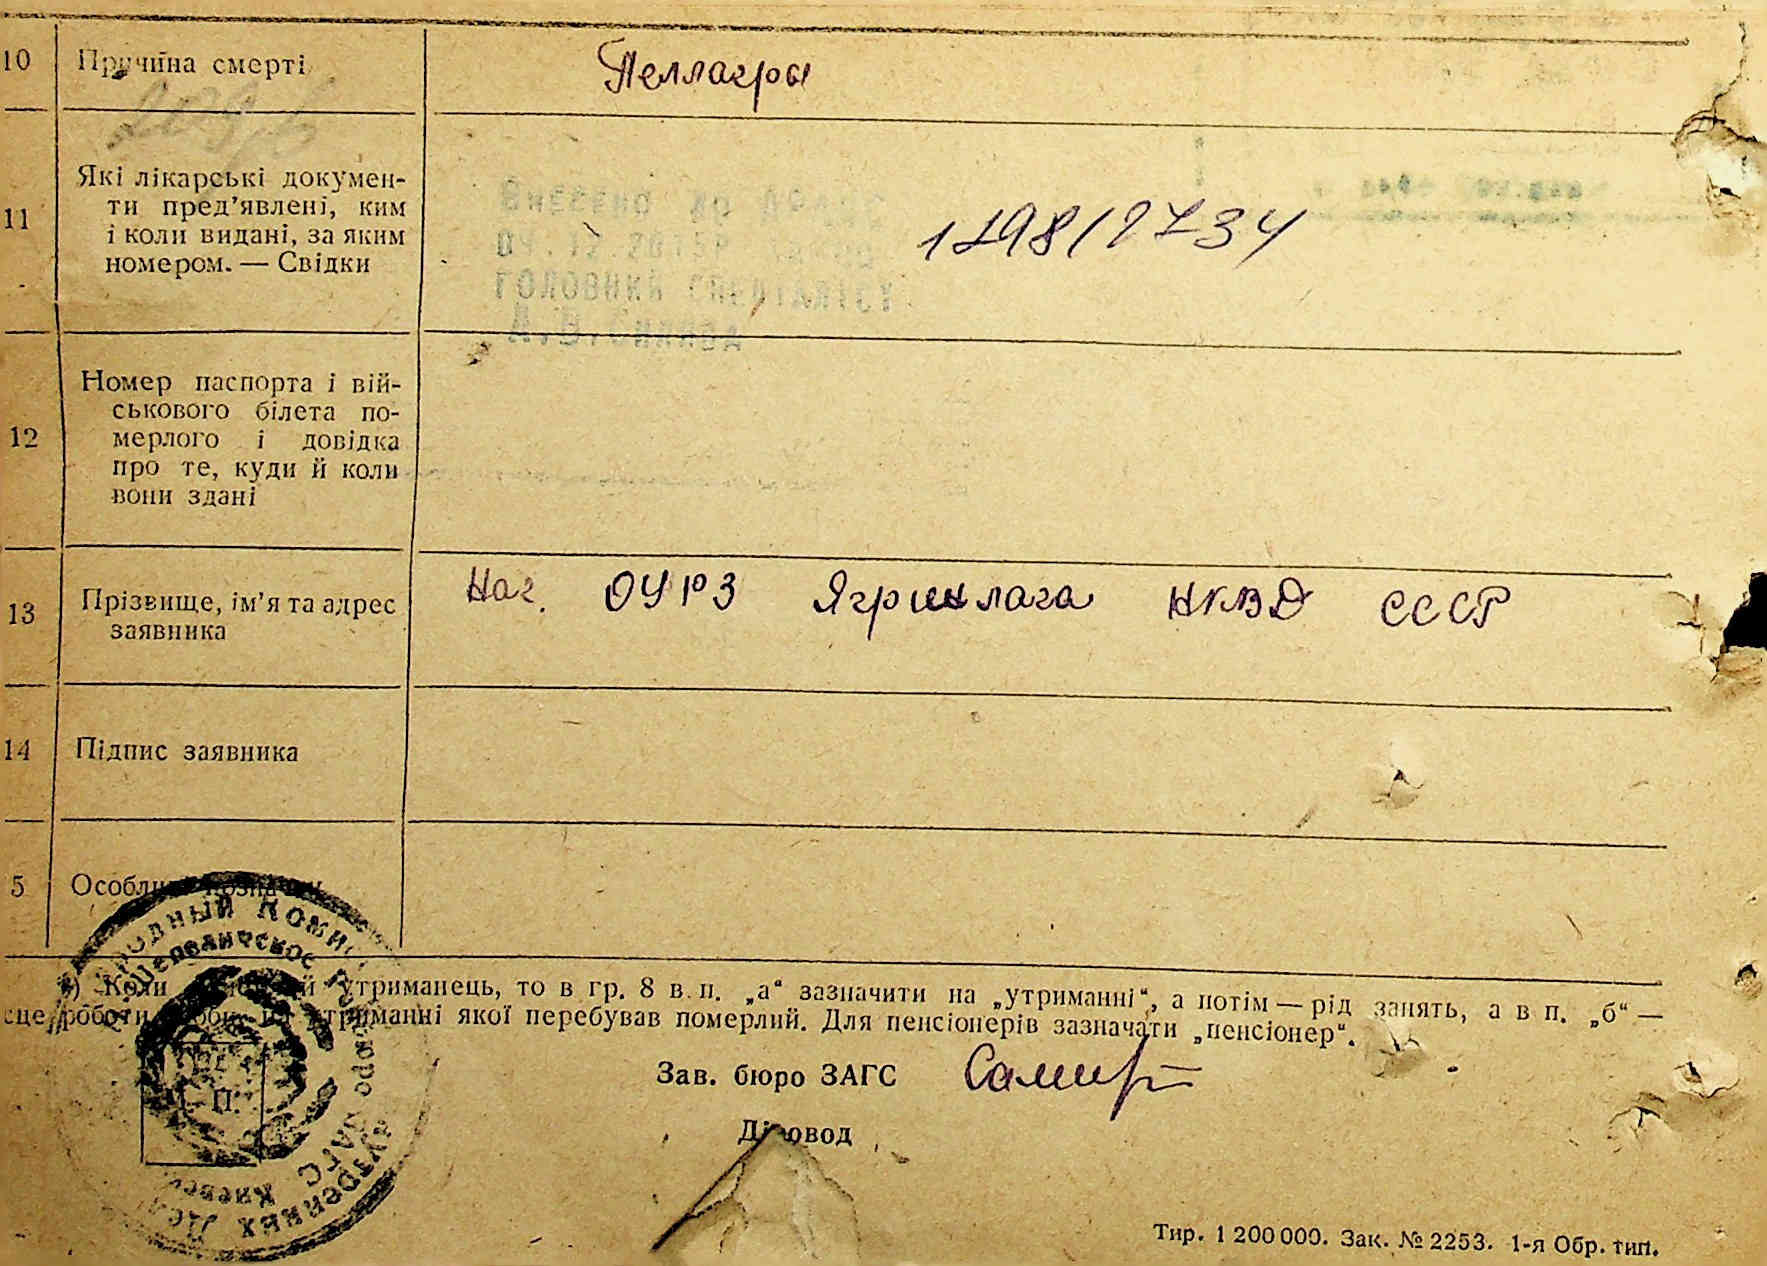 10 Причина смерті
Пеллагры
11 Які лікарські докумен-
ти пред’явлені, ким
і коли видані, за яким
номером. — Свідки
Внесено до
ГОЛОВНИЙ СПЕЦІАЛІСТ
12 Номер паспорта і вій-
ськового білета по-
мерлого і довідка
про те, куди й коли
вони здані
13 Прізвище, ім’я та адрес
заявника
Нач. ОУРЗ Ягринлага НКВД СССР
14 Підпис заявника
5
Коли утриманець, то в гр. 8 в п. „а“ зазначити на „утриманні“, а потім — рід занять, а в п. „б“ —
роботи утриманні якої перебував померлий. Для пенсіонерів зазначати „пенсіонер“.
Зав. бюро ЗАГС
Діловод
П.
ЗАГС
Внутренних Дел
Тир. 1 200 000. Зак. № 2253. 1-я Обр. тип.